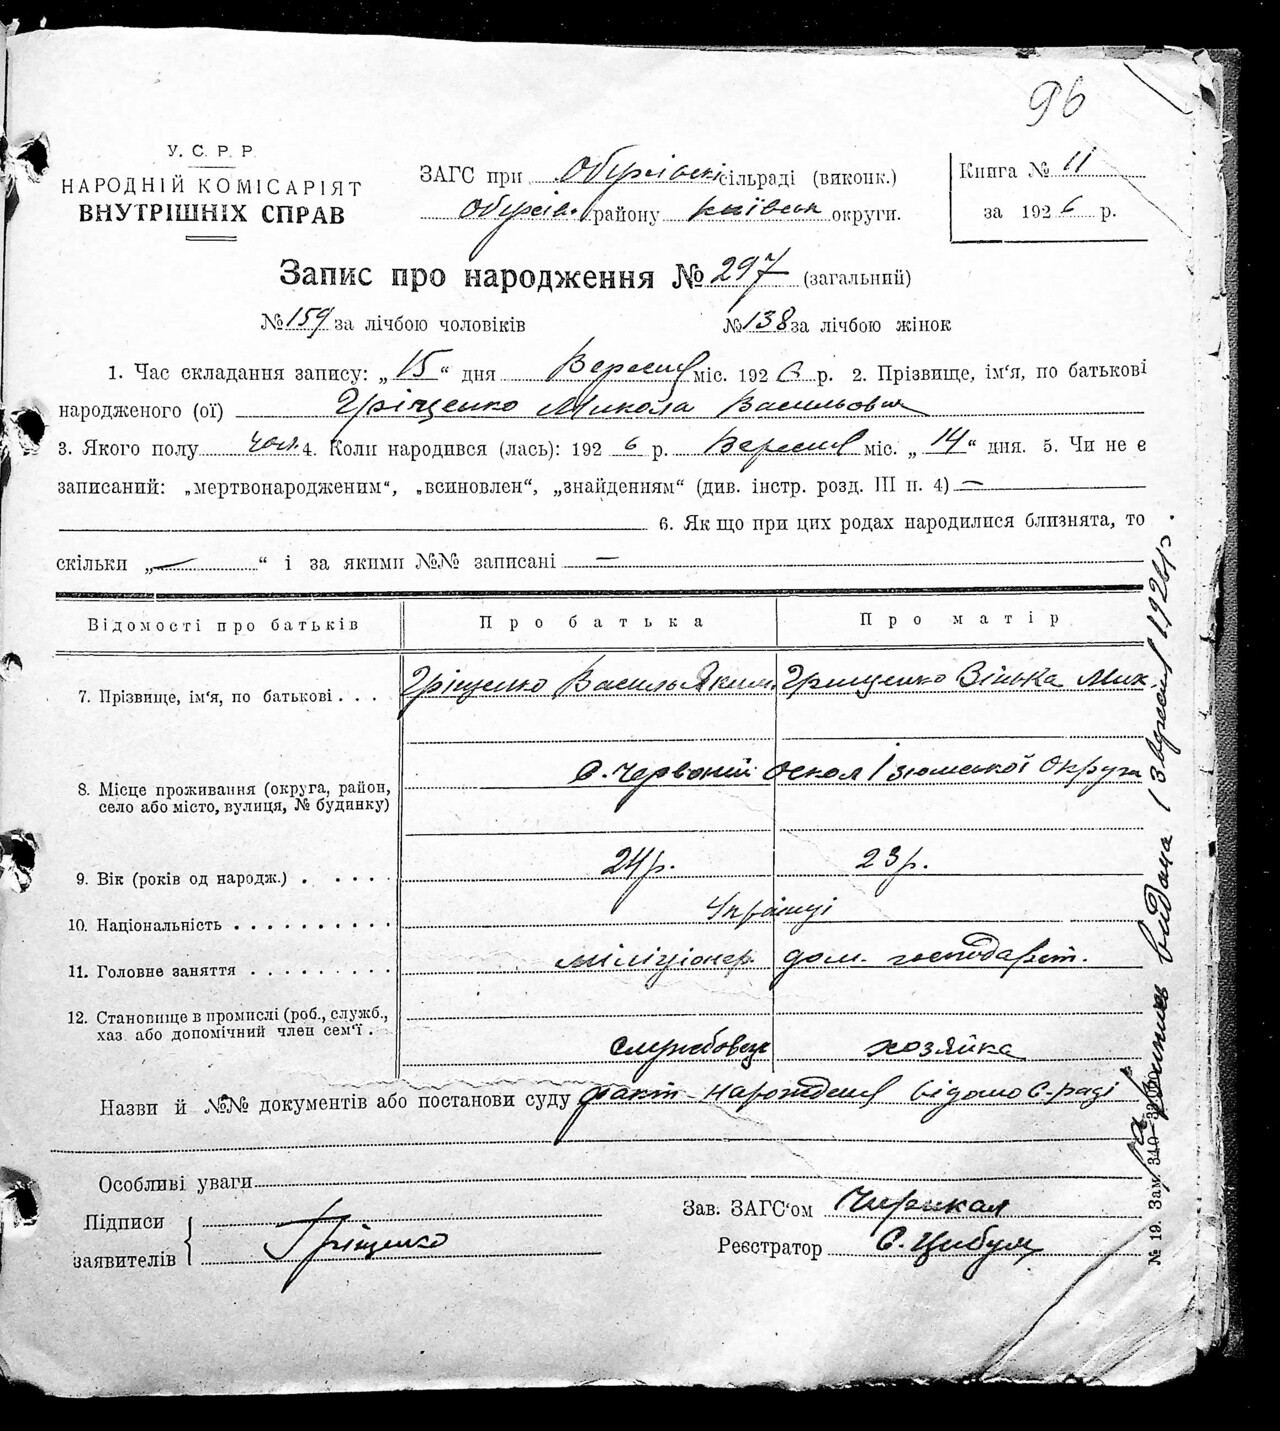 96
У. С. Р. Р.
НАРОДНІЙ КОМІСАРІЯТ
ВНУТРІШНІХ СПРАВ
ЗАГС при Обухівські сільраді (виконк.)
Обухів. району Київськ округи.
Книга № 11
за 1926 р.
Запис про народження № 297 (загальний)
№ 159 за лічбою чоловіків № 138 за лічбою жінок
1. Час складання запису: „15“ дня Вересня міс. 1926 р. 2. Прізвище, ім'я, по батькові
народженого (ої) Гріщенко Микола Васильович
3. Якого полу чол. 4. Коли народився (лась): 1926 р. Вересня міс. „14“ дня. 5. Чи не є
записаний: „мертвонародженим“, „всиновлен“, „знайденням“ (див. інстр. розд. III п. 4) —
6. Як що при цих родах народилися близнята, то
скільки „—“ і за якими №№ записані —
Відомості про батьків Про батька Про матір
7. Прізвище, ім'я, по батькові . . . Гріщенко Василь Яким. Грищенко Вінька Мих
8. Місце проживання (округа, район, село або місто, вулиця, № будинку) С. Червоний Оскол Ізюмської Округи
9. Вік (років од народж.) . . . . . 24 р. 23 р.
10. Національність . . . . . . . . . . Українці
11. Головне заняття . . . . . . . . . міліціонер дом. господарст.
12. Становище в промислі (роб., служб.,
хаз. або допомічний член сем'ї . службовець хозяйка
Назви й №№ документів або постанови суду факт народження відомо С-раді
Особливі уваги
Підписи
заявителів Гріщенко
Зав. ЗАГС'ом
Реєстратор С. Цибуля
№ 19. Зам. 340
видана 13 вересня 1926 р.